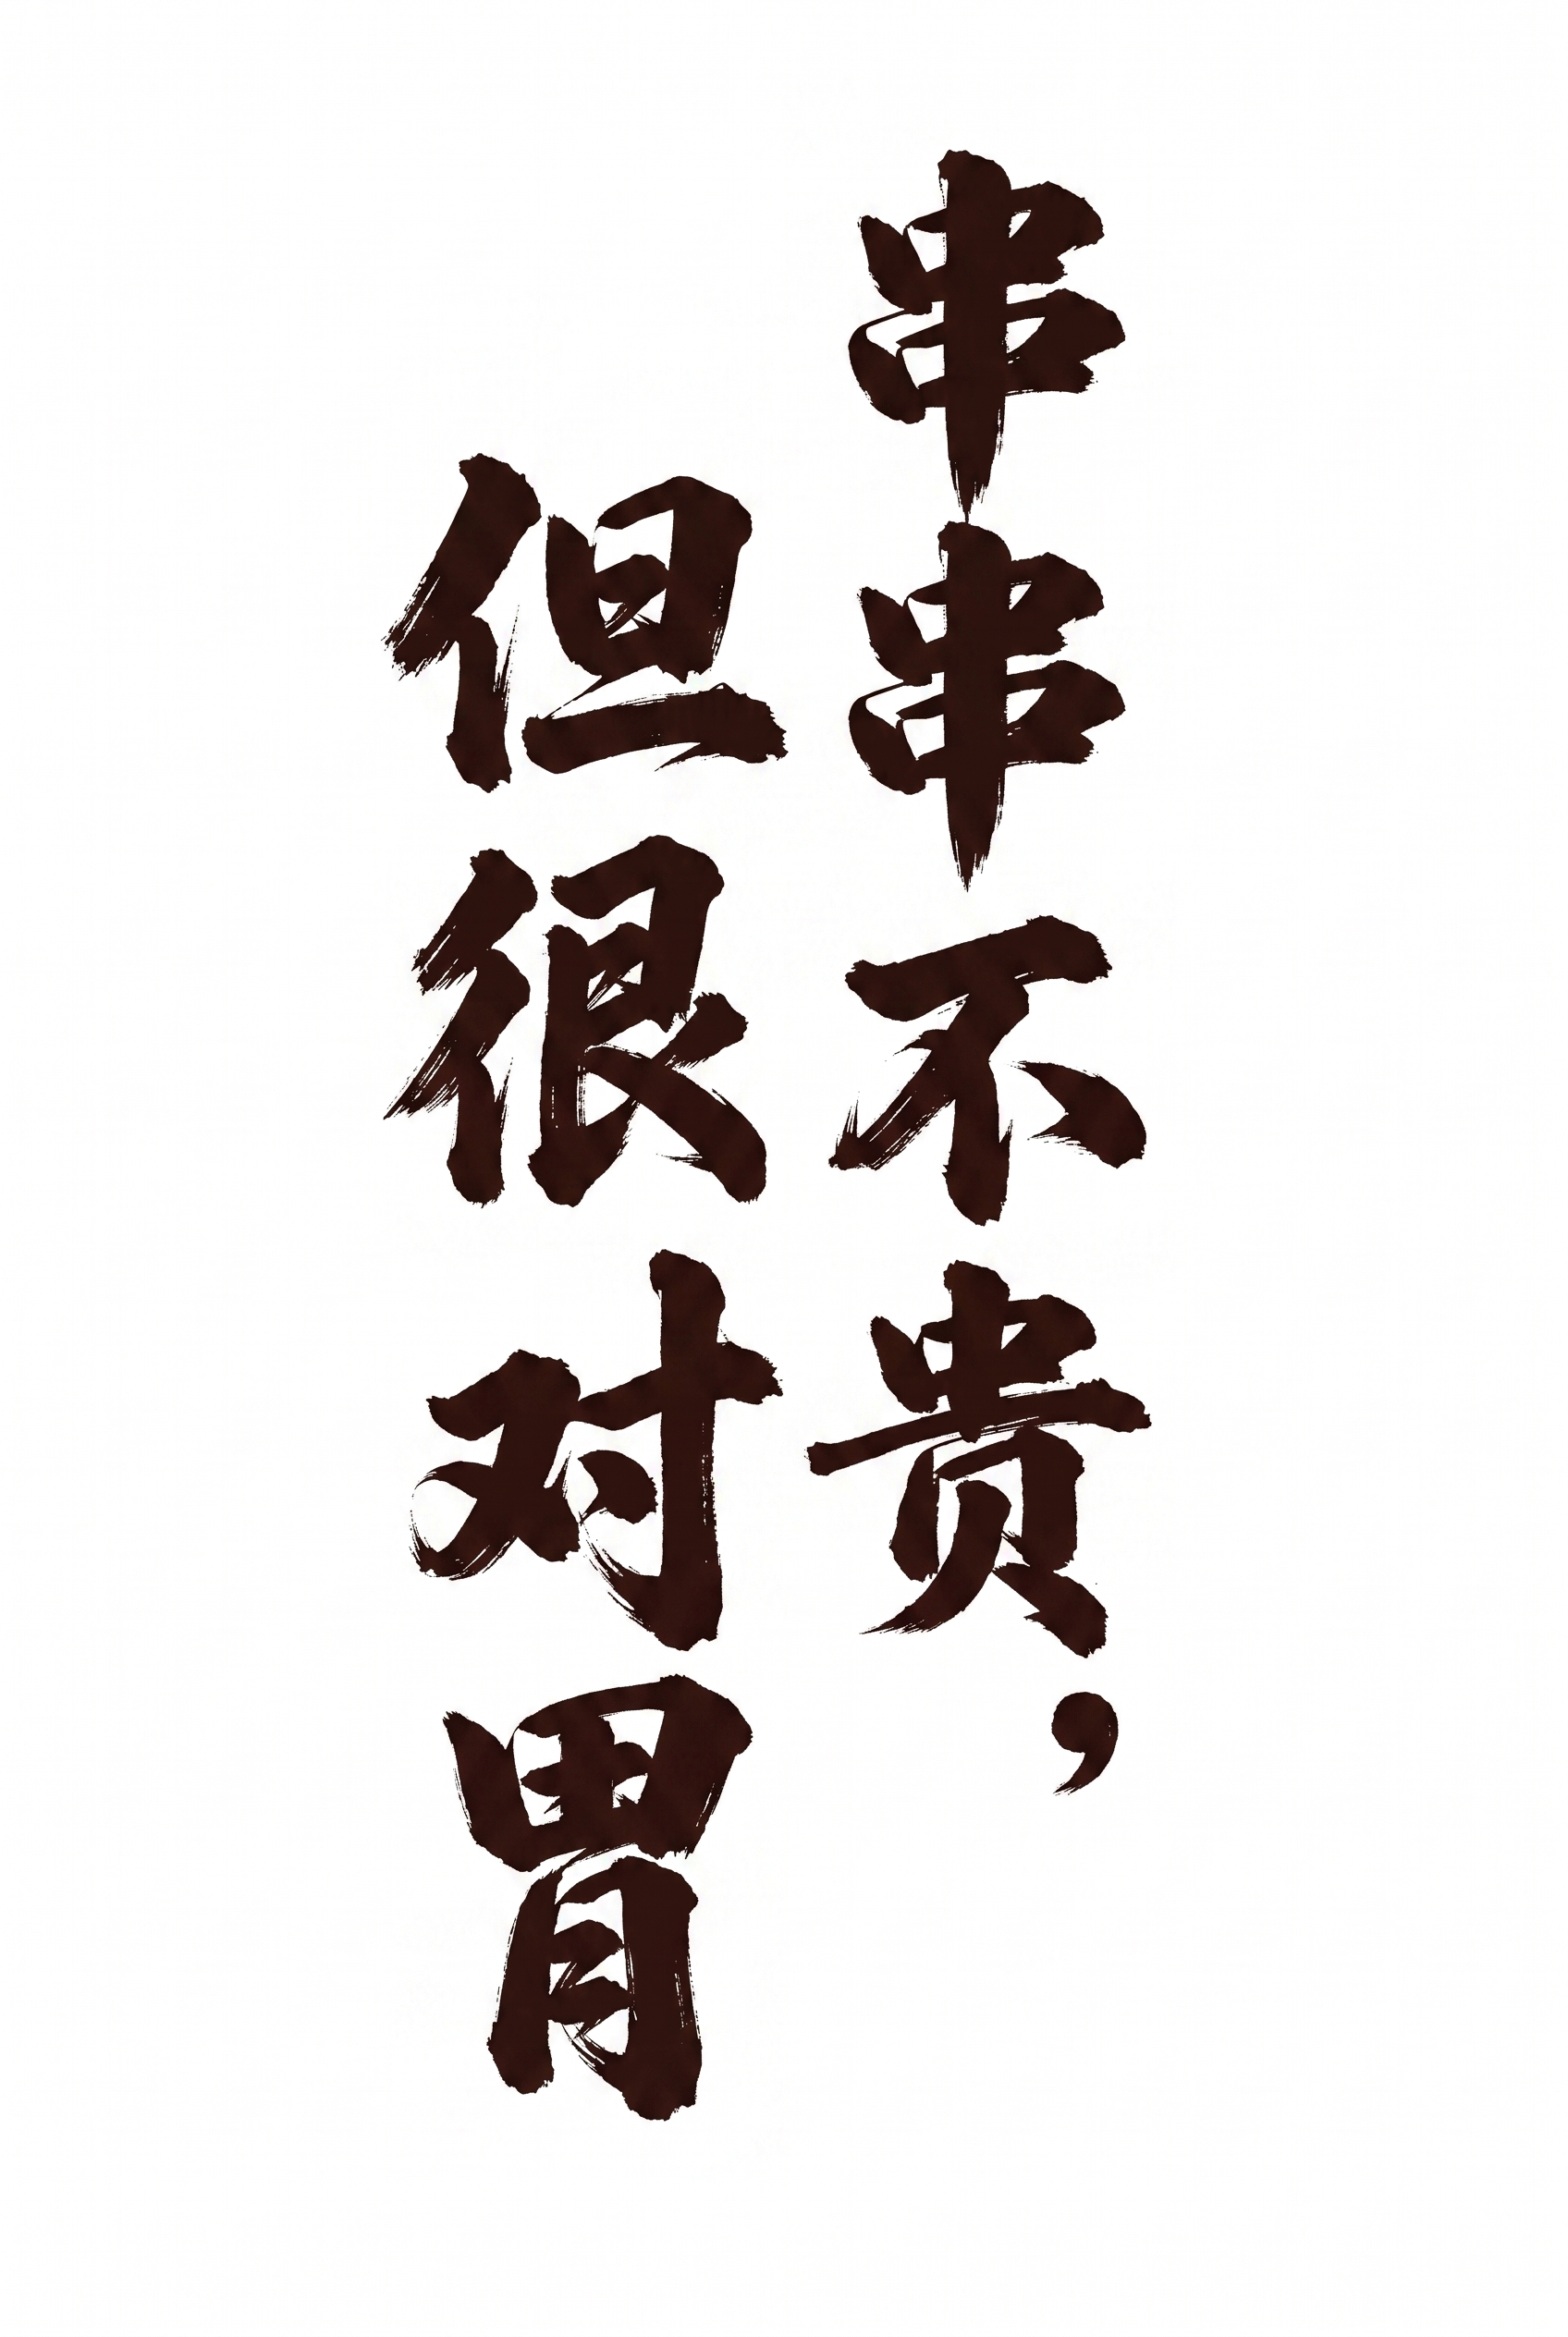 串串不贵，
但很对胃